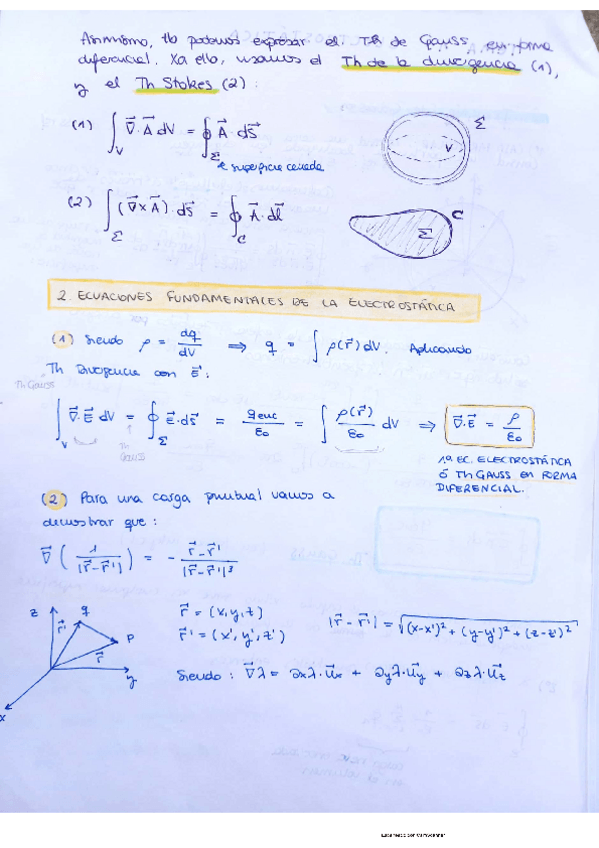 Asimismo, tb podemos expresar el Th de Gauss, en forma
diferencial. Xa ello, usamos el Th de la divergencia (1),
y el Th Stokes (2):
(1) ∫_V ∇⃗·A⃗ dV = ∮_Σ A⃗·dS⃗
Σ
V
superficie cerrada
(2) ∫_Σ (∇⃗×A⃗)·dS⃗ = ∮_C A⃗·dl⃗
C
Σ
2. ECUACIONES FUNDAMENTALES DE LA ELECTROSTÁTICA
(1) Siendo ρ = dq/dV ⟹ q = ∫ρ(r⃗)dV. Aplicando
Th Divergencia con E⃗:
Th Gauss
∫_V ∇⃗·E⃗ dV = ∮_Σ E⃗·dS⃗ = q_enc/ε₀ = ∫ ρ(r⃗)/ε₀ dV ⟹ ∇⃗·E⃗ = ρ/ε₀
Th
GAUSS
1ª EC. ELECTROSTÁTICA
ó Th GAUSS EN FORMA
DIFERENCIAL.
(2) Para una carga puntual vamos a
demostrar que:
∇⃗(1/|r⃗-r⃗'|) = - (r⃗-r⃗')/|r⃗-r⃗'|³
z q r⃗' P r⃗ y x
r⃗ = (x,y,z)
r⃗' = (x',y',z')
|r⃗-r⃗'| = √((x-x')² + (y-y')² + (z-z')²)
Siendo: ∇⃗λ = ∂xλ·u⃗x + ∂yλ·u⃗y + ∂zλ·u⃗z